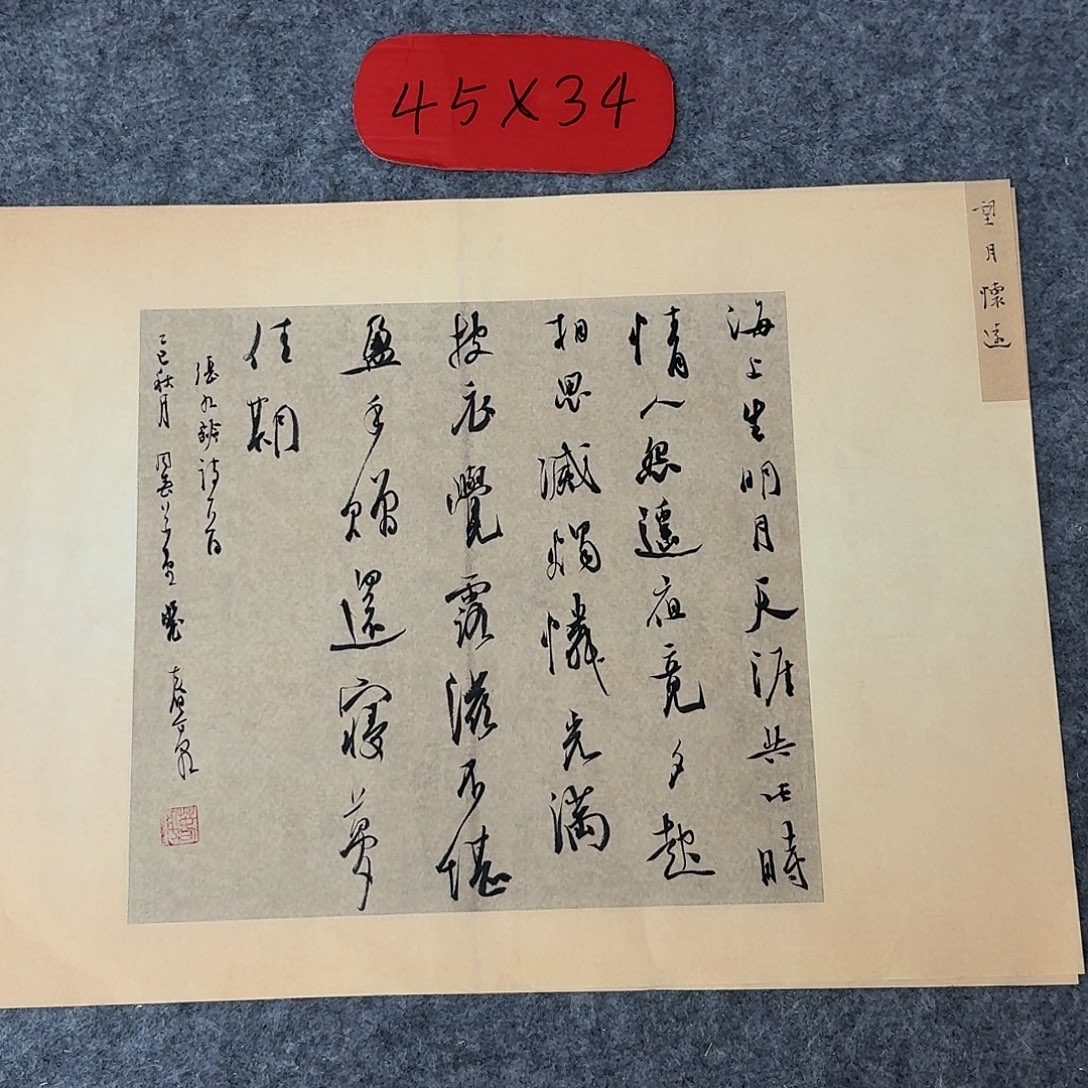 45X34
望月懷遠
海上生明月天涯共此時
情人怨遥夜竟夕起
相思滅燭憐光滿
披衣覺露滋不堪
盈手贈還寢夢
佳期
張九齡詩一首
乙巳秋月